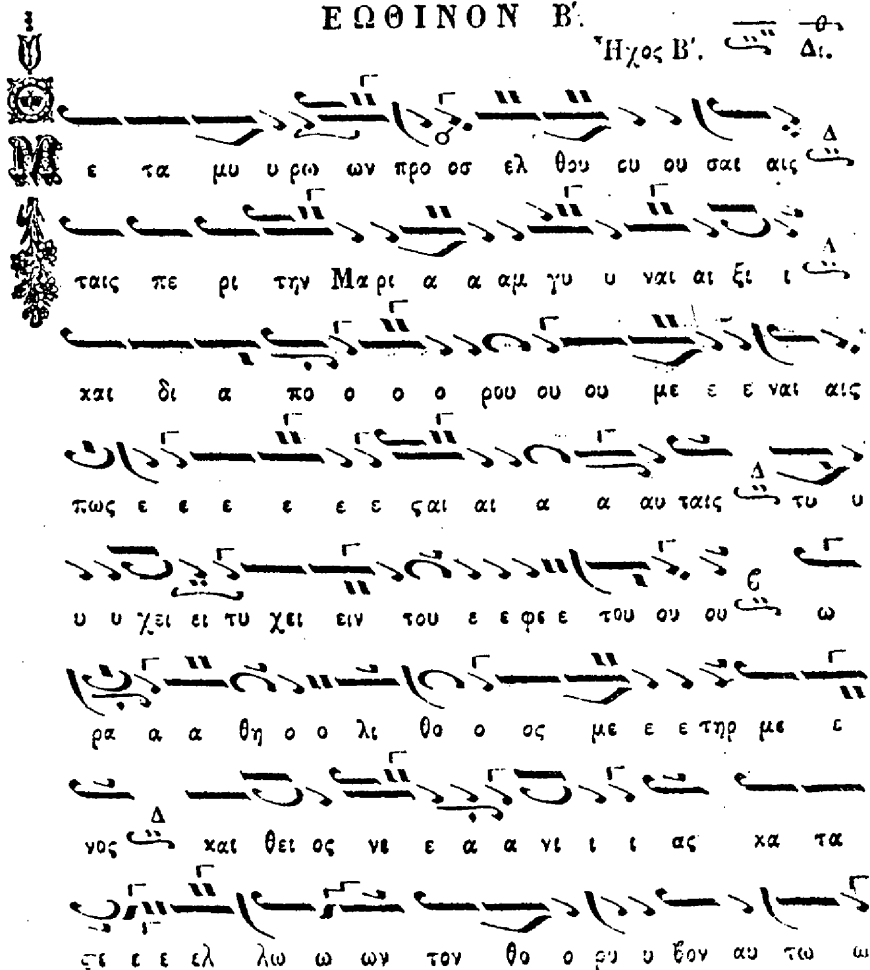 ΕΩΘΙΝΟΝ Β΄.
Ἦχος Β΄. Δι.
Μ ε τα μυ υ ρω ων προ οσ ελ θου ου ου σαι αις Δ
ταις πε ρι την Μα ρι α α αμ γυ υ ναι αι ξι ι Δ
και δι α πο ο ο ο ρου ου ου με ε ε ναι αις
πως ε ε ε ε ε ε ςαι αι α α αυ ταις Δ τυ υ
υ υ χει ει τυ χει ειν του ε ε φε ε του ου ου ϐ ω
ρα α α θη ο ο λι θο ο ος με ε ε τηρ με ε
νος Δ και θει ος νε ε α α νι ι ι ας κα τα
ςε ε ε ελ λω ω ων τον θο ο ρυ υ ϐον αυ τω ω